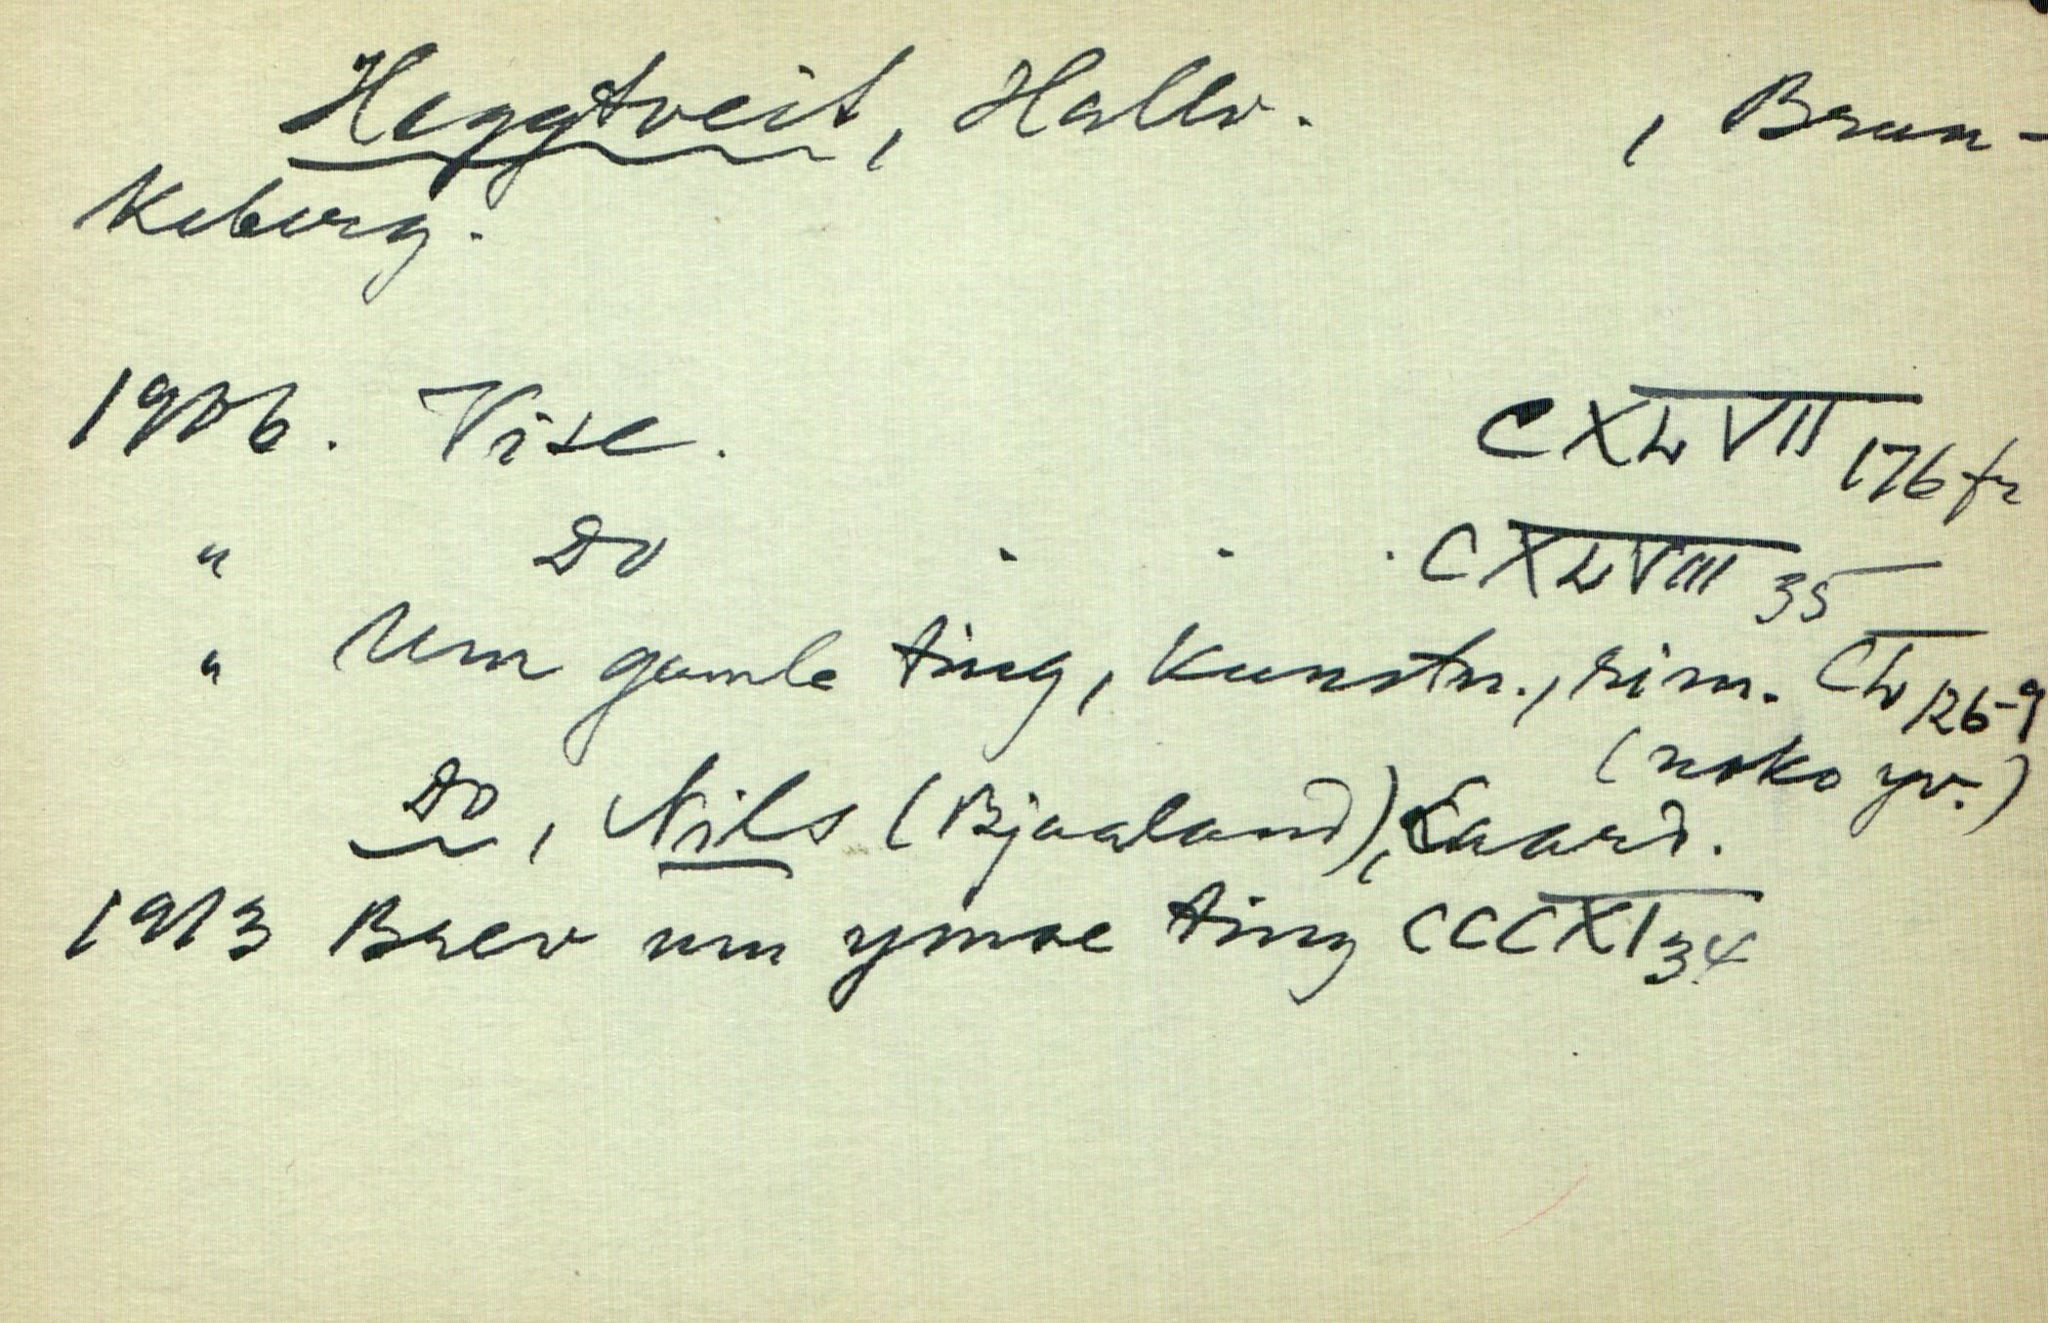 Heggtveit, Hallv. , Brun-
keberg.
1906. Vise. CXLVII 176 fr
" Do . . . CXLVIII 35
" Um gamle ting, kunstn., rim. CL 126-9
(noko yv.)
Do, Nils (Bjaaland), Laard.
1913 Brev um ymse ting CCCXI 34